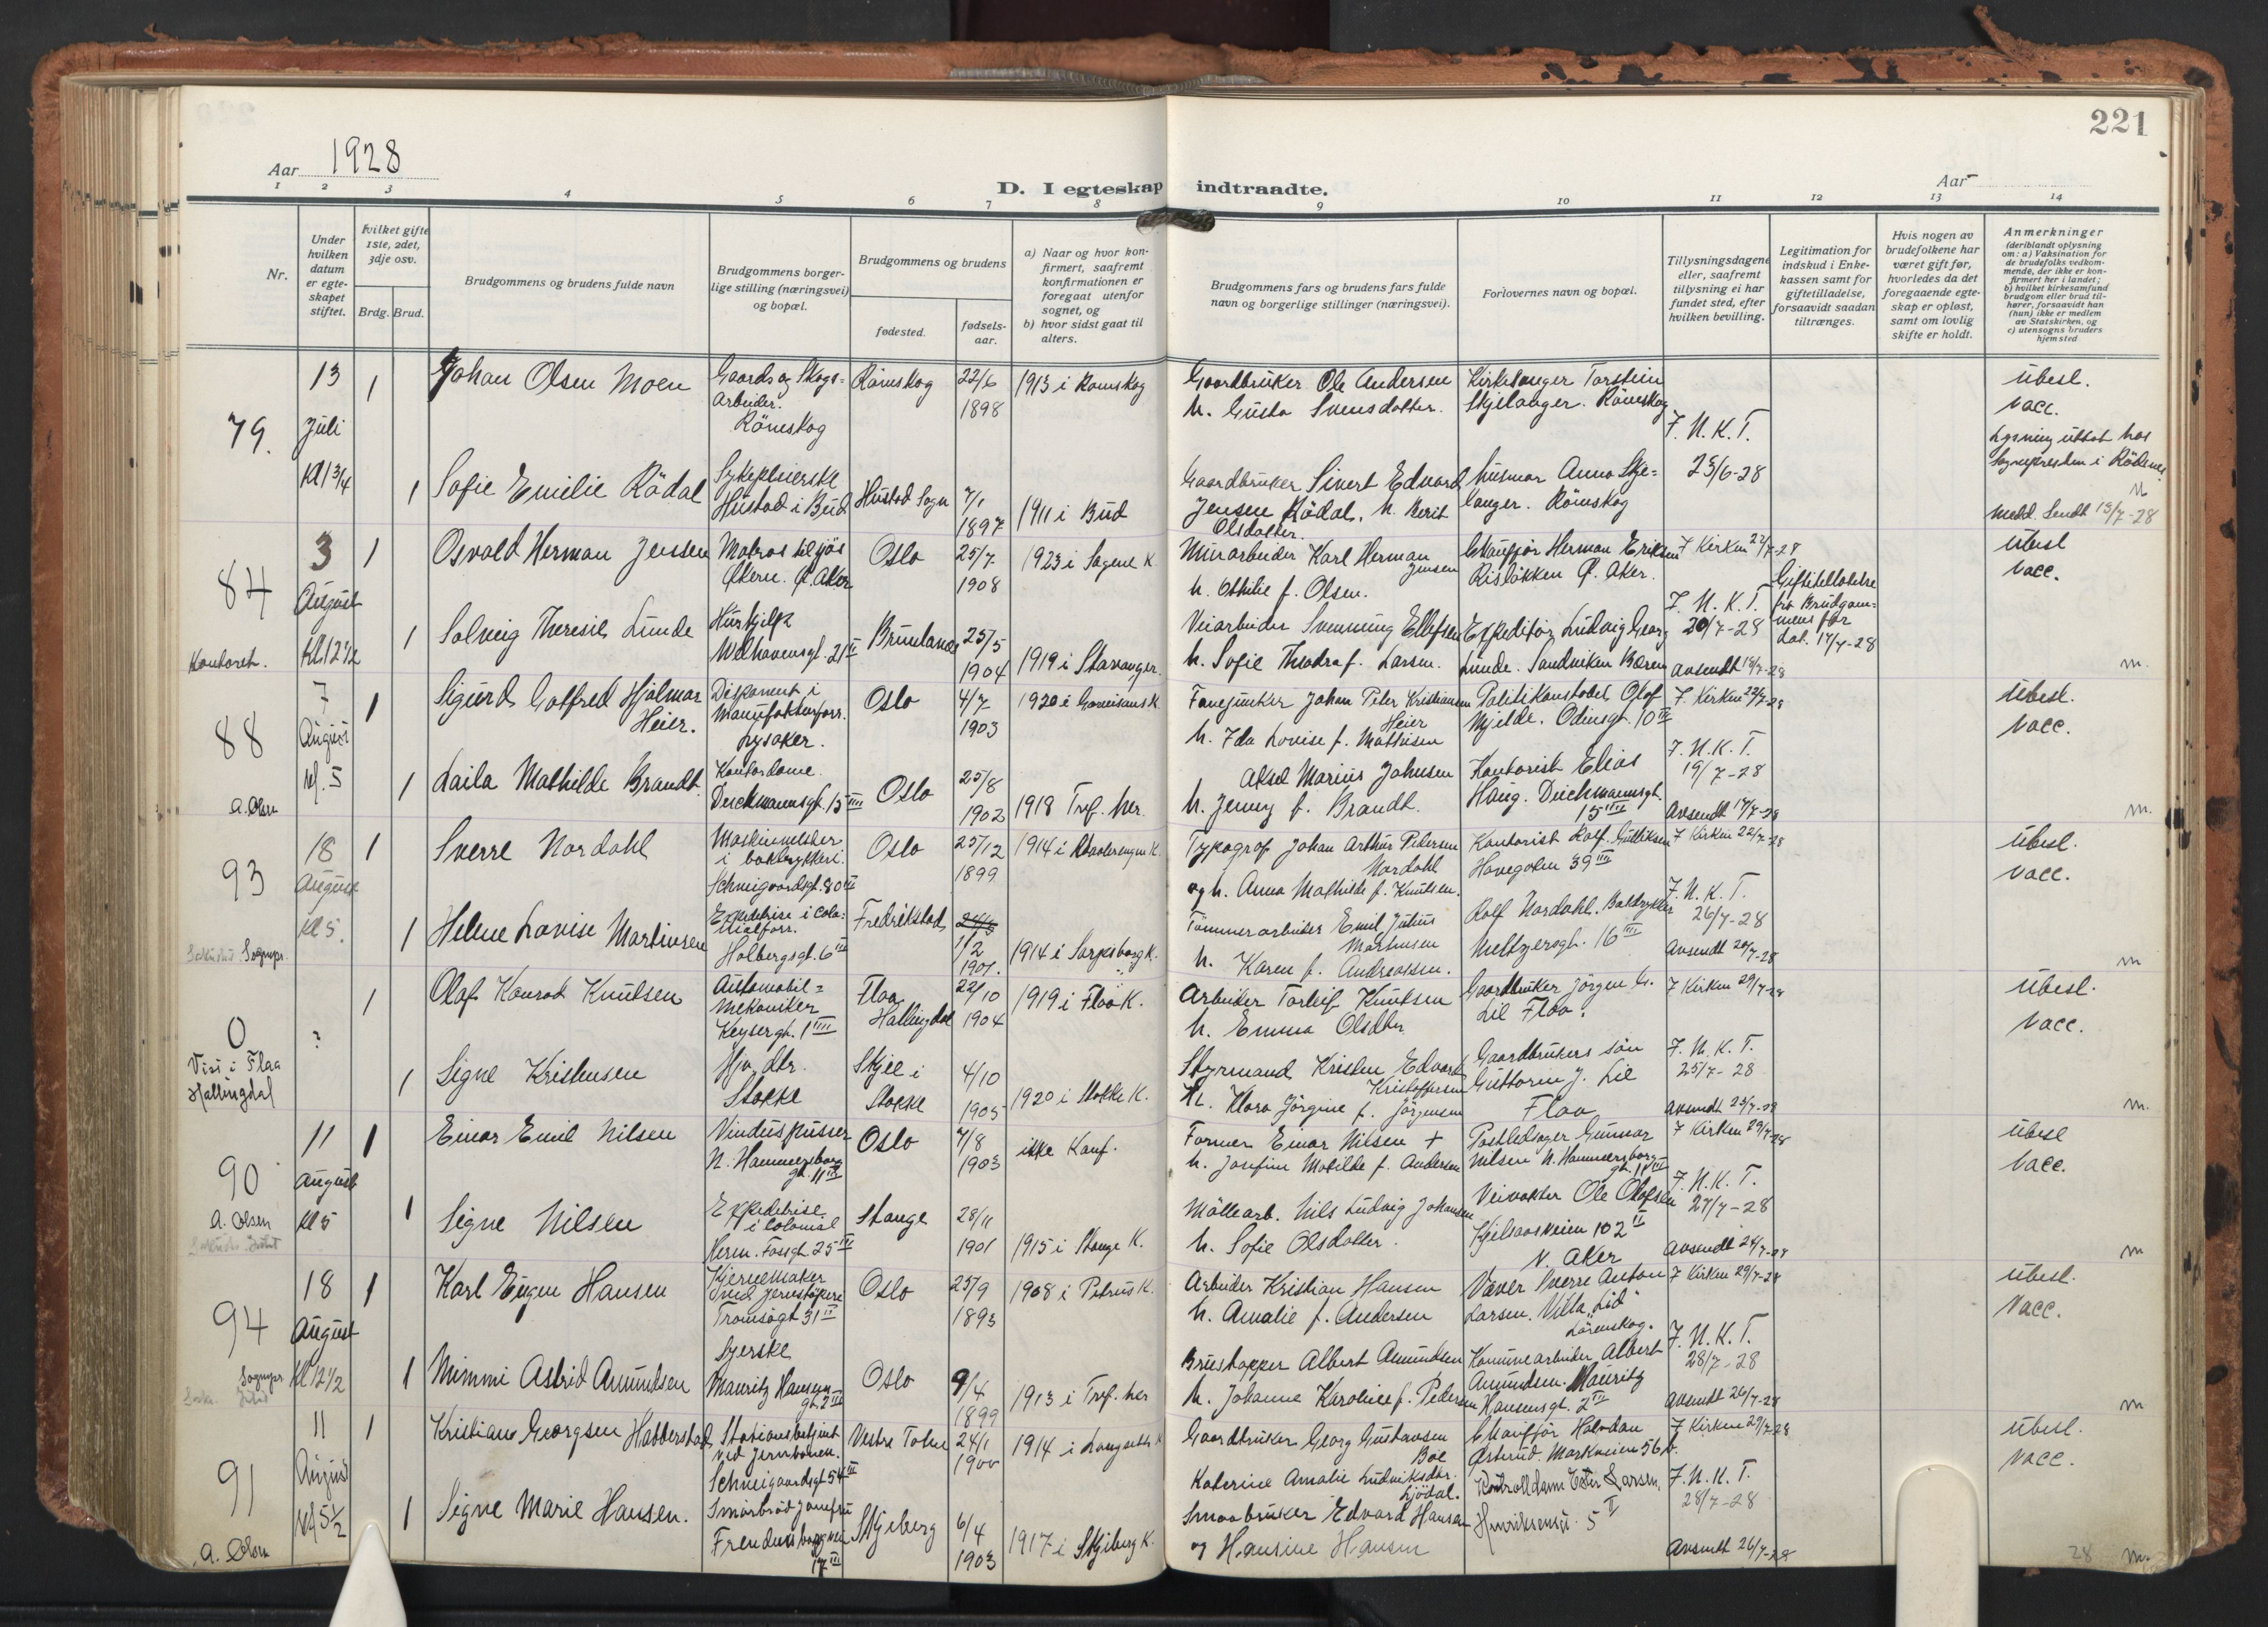 221
Aar 1928
D. I egteskap indtraadte.
Aar
1 2 3 4 5 6 7 8 9 10 11 12 13 14
Nr.
Under hvilken datum er egteskapet stiftet.
Hvilket gifte 1ste, 2det, 3dje osv.
Brdg. Brud.
Brudgommens og brudens fulde navn
Brudgommens borgerlige stilling (næringsvei) og bopæl.
Brudgommens og brudens
fødested.
fødselsaar.
a) Naar og hvor konfirmert, saafremt konfirmationen er foregaat utenfor sognet, og
b) hvor sidst gaat til alters.
Brudgommens fars og brudens fars fulde navn og borgerlige stillinger (næringsvei).
Forlovernes navn og bopæl.
Tillysningsdagene eller, saafremt tillysning ei har fundet sted, efter hvilken bevilling.
Legitimation for indskud i Enkekassen samt for giftetilladelse, forsaavidt saadan tiltrænges.
Hvis nogen av brudefolkene har været gift før, hvorledes da det foregaaende egteskap er opløst, samt om lovlig skifte er holdt.
Anmerkninger
(deriblandt oplysning om: a) Vaksination for de brudefolks vedkommende, der ikke er konfirmert her i landet; b) hvilket kirkesamfund brudgom eller brud tilhører, forsaavidt han (hun) ikke er medlem av Statskirken, og c) utensogns bruders hjemsted
79. 13 Juli Kl 1 3/4
1 Johan Olsen Moen
Gaards og Skogs=
Arbeider.
Römskog
Römskog 22/6 1898 1913 i Römskog
Gaardbruker Ole Andersen
h. Gusta Svensdatter.
Kirkesanger Torstein
Skjelanger. Römskog
F. N. K. T.
23/6-28
ubesl.
vacc.
Lysning uttat hos
Sognepresten i Rödenes
medd. sendt 13/7-28
1 Sofie Emilie Rödal
Sykepleierske
Hustad i Bud
Hustad Sogn 7/1 1897 1911 i Bud
Gaardbruker Sivert Edvard
Jensen Rödal. h. Berit
Olsdatter.
Husmor Anna Skje=
langer. Römskog
84 3 August Kl 12 1/2
Kontoret.
1 Osvald Herman Jensen
Matros tilsjös
Økern. Ø. Aker
Oslo 25/7 1908 1923 i Sagene K
Murarbeider Karl Herman
Jensen
h. Othilie f. Olsen.
Chauffør Herman Eriksen
Risløkken Ø. Aker.
F Kirken 22/7-28
F. N. K. T.
20/7-28
avsendt 18/7-28
Giftetilladelse
fra Brudgom=
mens far
dat. 17/7-28
ubesl
vacc.
1 Solveig Theresie Lunde
Hushjelp
Welhavensgt. 21 II
Brunlanes 25/5 1904 1919 i Stavanger
Veiarbeider Svenning Ellefsen
h. Sofie Theodra f. Larsen.
Expeditør Ludvig Georg
Lunde. Sandviken Bærum
m.
88 7 August kl. 5
A. Olsen
1 Sigurd Gotfred Hjalmar
Heier.
Disponent i
Manufakturforr.
Lysaker.
Oslo 4/7 1903 1920 i Garnisons K
Fanejunker Johan Peter Kristiansen
Heier
h. Ida Lovise f. Mathisen
Politikonstabel Olof
Mjelde. Odinsgt. 10 III
F. Kirken 22/7-28
F. N. K. T.
19/7-28
Avsendt 17/7-28
ubesl.
vacc.
1 Laila Mathilde Brandt
Kontordame.
Deichmannsgt. 15 IIII
Oslo 25/8 1902 1918 Tref. her.
Aksel Marius Johnsen
h. Jenny f. Brandt.
Kontorist Elias
Haug. Deichmannsgt.
15 IIII
m.
93 18 August Kl 5.
Sognepr.
1 Sverre Nordahl
Maskinmester
i boktrykkeri.
Schweigaardsgt. 80 III
Oslo 25/12 1899 1914 i Vaalerengen K.
Typograf Johan Arthur Pedersen
Nordahl
og h. Anna Mathilde f. Knutsen.
Kontorist Rolf Gulliksen
Hovegaten 39 IIII
F Kirken 22/7-28
F. N. K. T.
26/7-28
Avsendt 20/7-28
ubesl.
vacc.
1 Helene Lovise Martinsen
Expeditrise i Colo=
nialforr.
Holbergsgt. 6 III
Fredrikstad 1/2 1901. 1914 i Sarpsborg K.
Tømmerarbeider Emil Julius
Martinsen
h. Karen f. Andreassen.
Rolf Nordahl. Boktrykker
Meltzersgt. 16 III
m
0 ?
Viet i Flaa
Hallingdal
1 Olaf Konrad Knutsen
Automobil=
mekaniker
Keysersgt. 1 IIII
Flaa,
Hallingdal 22/10 1904 1919 i Flaa K.
Arbeider Torleif Knutsen
h. Emma Olsdtr
Gaardbruker Jørgen G.
Lie Flaa.
F Kirken 29/7-28
F. N. K. T.
25/7-28
avsendt 23/7-28
ubesl.
vacc.
1 Signe Kristensen
Hjv. dtr.
Stokke
Skjee i
Stokke 4/10 1905 1920 i Stokke K.
Styrmand Kristen Edvart
Kristoffersen
h. Klara Jørgine f. Jørgensen
Gaardbrukers søn
Guttorm J. Lie
Flaa
m.
90 11 August Kl 5
A. Olsen
1 Einar Emil Nilsen
Vinduspusser
N. Hammersborg
gt. 11 III
Oslo 7/8 1903 ikke Konf.
Former Einar Nilsen +
h. Josefine Matilde f. Andersen
Postledsager Gunnar
Nilsen N. Hammersborg
gt. 11 III
F Kirken 29/7-28
F. N. K. T.
27/7-28
Avsendt 24/7-28
ubesl
vacc.
1 Signe Nilsen
Expeditrise
i Colonial
Herm. Fossgt. 25 III
Stange 28/11 1901 1915 i Stange K.
Møllearb. Nils Ludvig Johansen
h. Sofie Olsdatter.
Veivokter Ole Olofsen
Kjelsaasveien 102 II
V. Aker
m
94 18 August Kl 12 1/2
Sognepr
1 Karl Eugen Hansen
Kjernemaker
ved Jernstøperi
Tromsøgt 31 II
Oslo 25/9 1893 1908 i Petrus K.
Arbeider Kristian Hansen
h. Amalie f. Andersen
Væver Sverre Anton
Larsen. Villa "Lid"
Lørenskog.
F Kirken 29/7-28
F. N. K. T.
28/7-28
avsendt 26/7-28
ubesl.
vacc.
1 Mimmi Astrid Amundsen
Syerske
Mauritz Hansens
gt. 2 III
Oslo 9/4 1899 1913 i Tref. her
Brustapper Albert Amundsen
h. Johanne Karoline f. Pedersen
Kommunearbeider Albert
Amundsen. Mauritz
Hansensgt. 2 III
m
91 11 August kl 5 1/2
A. Olsen
1 Kristian Georgsen Habberstad
Stationsbetjent
ved Jernbanen.
Schweigaardsgt 54 III
Vestre Toten 24/1 1900 1914 i Langseth K
Gaardbruker Georg Gustavsen
Boe
Katerine Amalie Ludviksdtr.
Sjødal.
Chauffør Halvdan
Østerud. Markveien 56 b.
F Kirken 29/7-28
F. N. K. T.
28/7-28
Avsendt 26/7-28
ubesl.
vacc.
1 Signe Marie Hansen.
Smørbrødjomfru
Fredensborgveien
17 III
Skjeberg 6/4 1903 1917 i Skjeberg K.
Smaabruker Edvard Hansen
og Hansine Hansen
Kontrolldame Ester Larsen.
5 II
28 m.